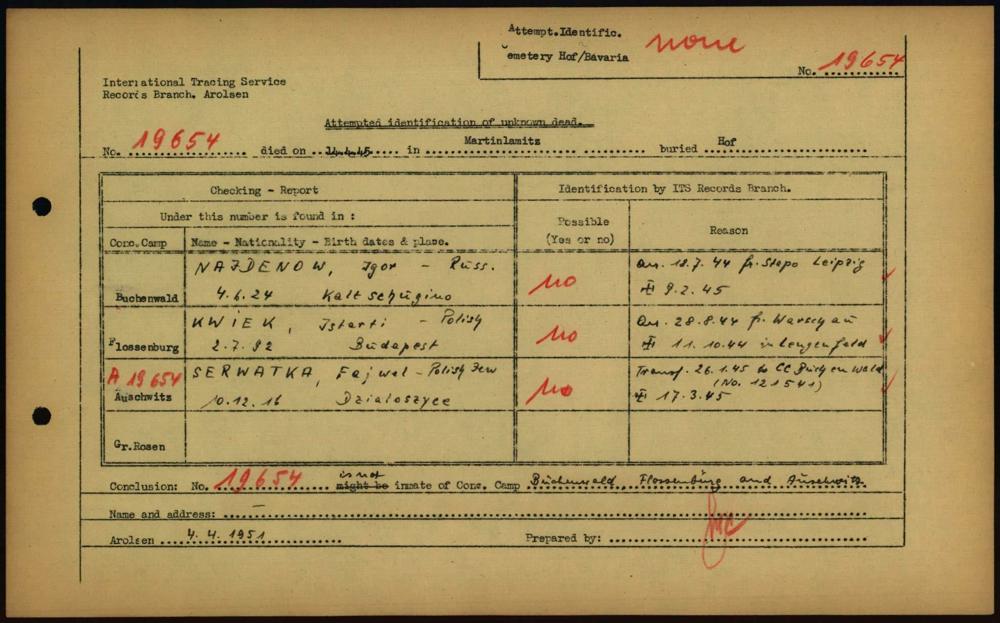 Attempt.Identific.
none
emetery Hof/Bavaria
No. 19654
International Tracing Service
Records Branch. Arolsen
Attempted identification of unknown dead.
No. 19654 died on 14.4.45 in Martinlamitz buried Hof
Checking - Report Identification by ITS Records Branch.
Under this number is found in : Possible
(Yes or no) Reason
Conc.Camp Name - Nationality - Birth dates & place.
NAJDENOW, Igor - Russ. Arr. 18.7.44 fr. Stapo Leipzig
Buchenwald 4.6.24 Kaltschugino no 9.2.45
KWIEK, Istarti - Polish Arr. 28.8.44 fr. Warschau
Flossenburg 2.7.92 Budapest no 11.10.44 in Lengenfeld
A 19654 SERWATKA, Fajwel - Polish Jew Transf. 26.1.45 to CC Buchenwald
(No. 121541)
Auschwitz 10.12.16 Dzialoszyce no 17.3.45
Gr.Rosen
is not
Conclusion: No. 19654 might be inmate of Conc. Camp Buchenwald, Flossenbürg and Auschwitz
Name and address: –
Arolsen 4.4.1951 Prepared by: